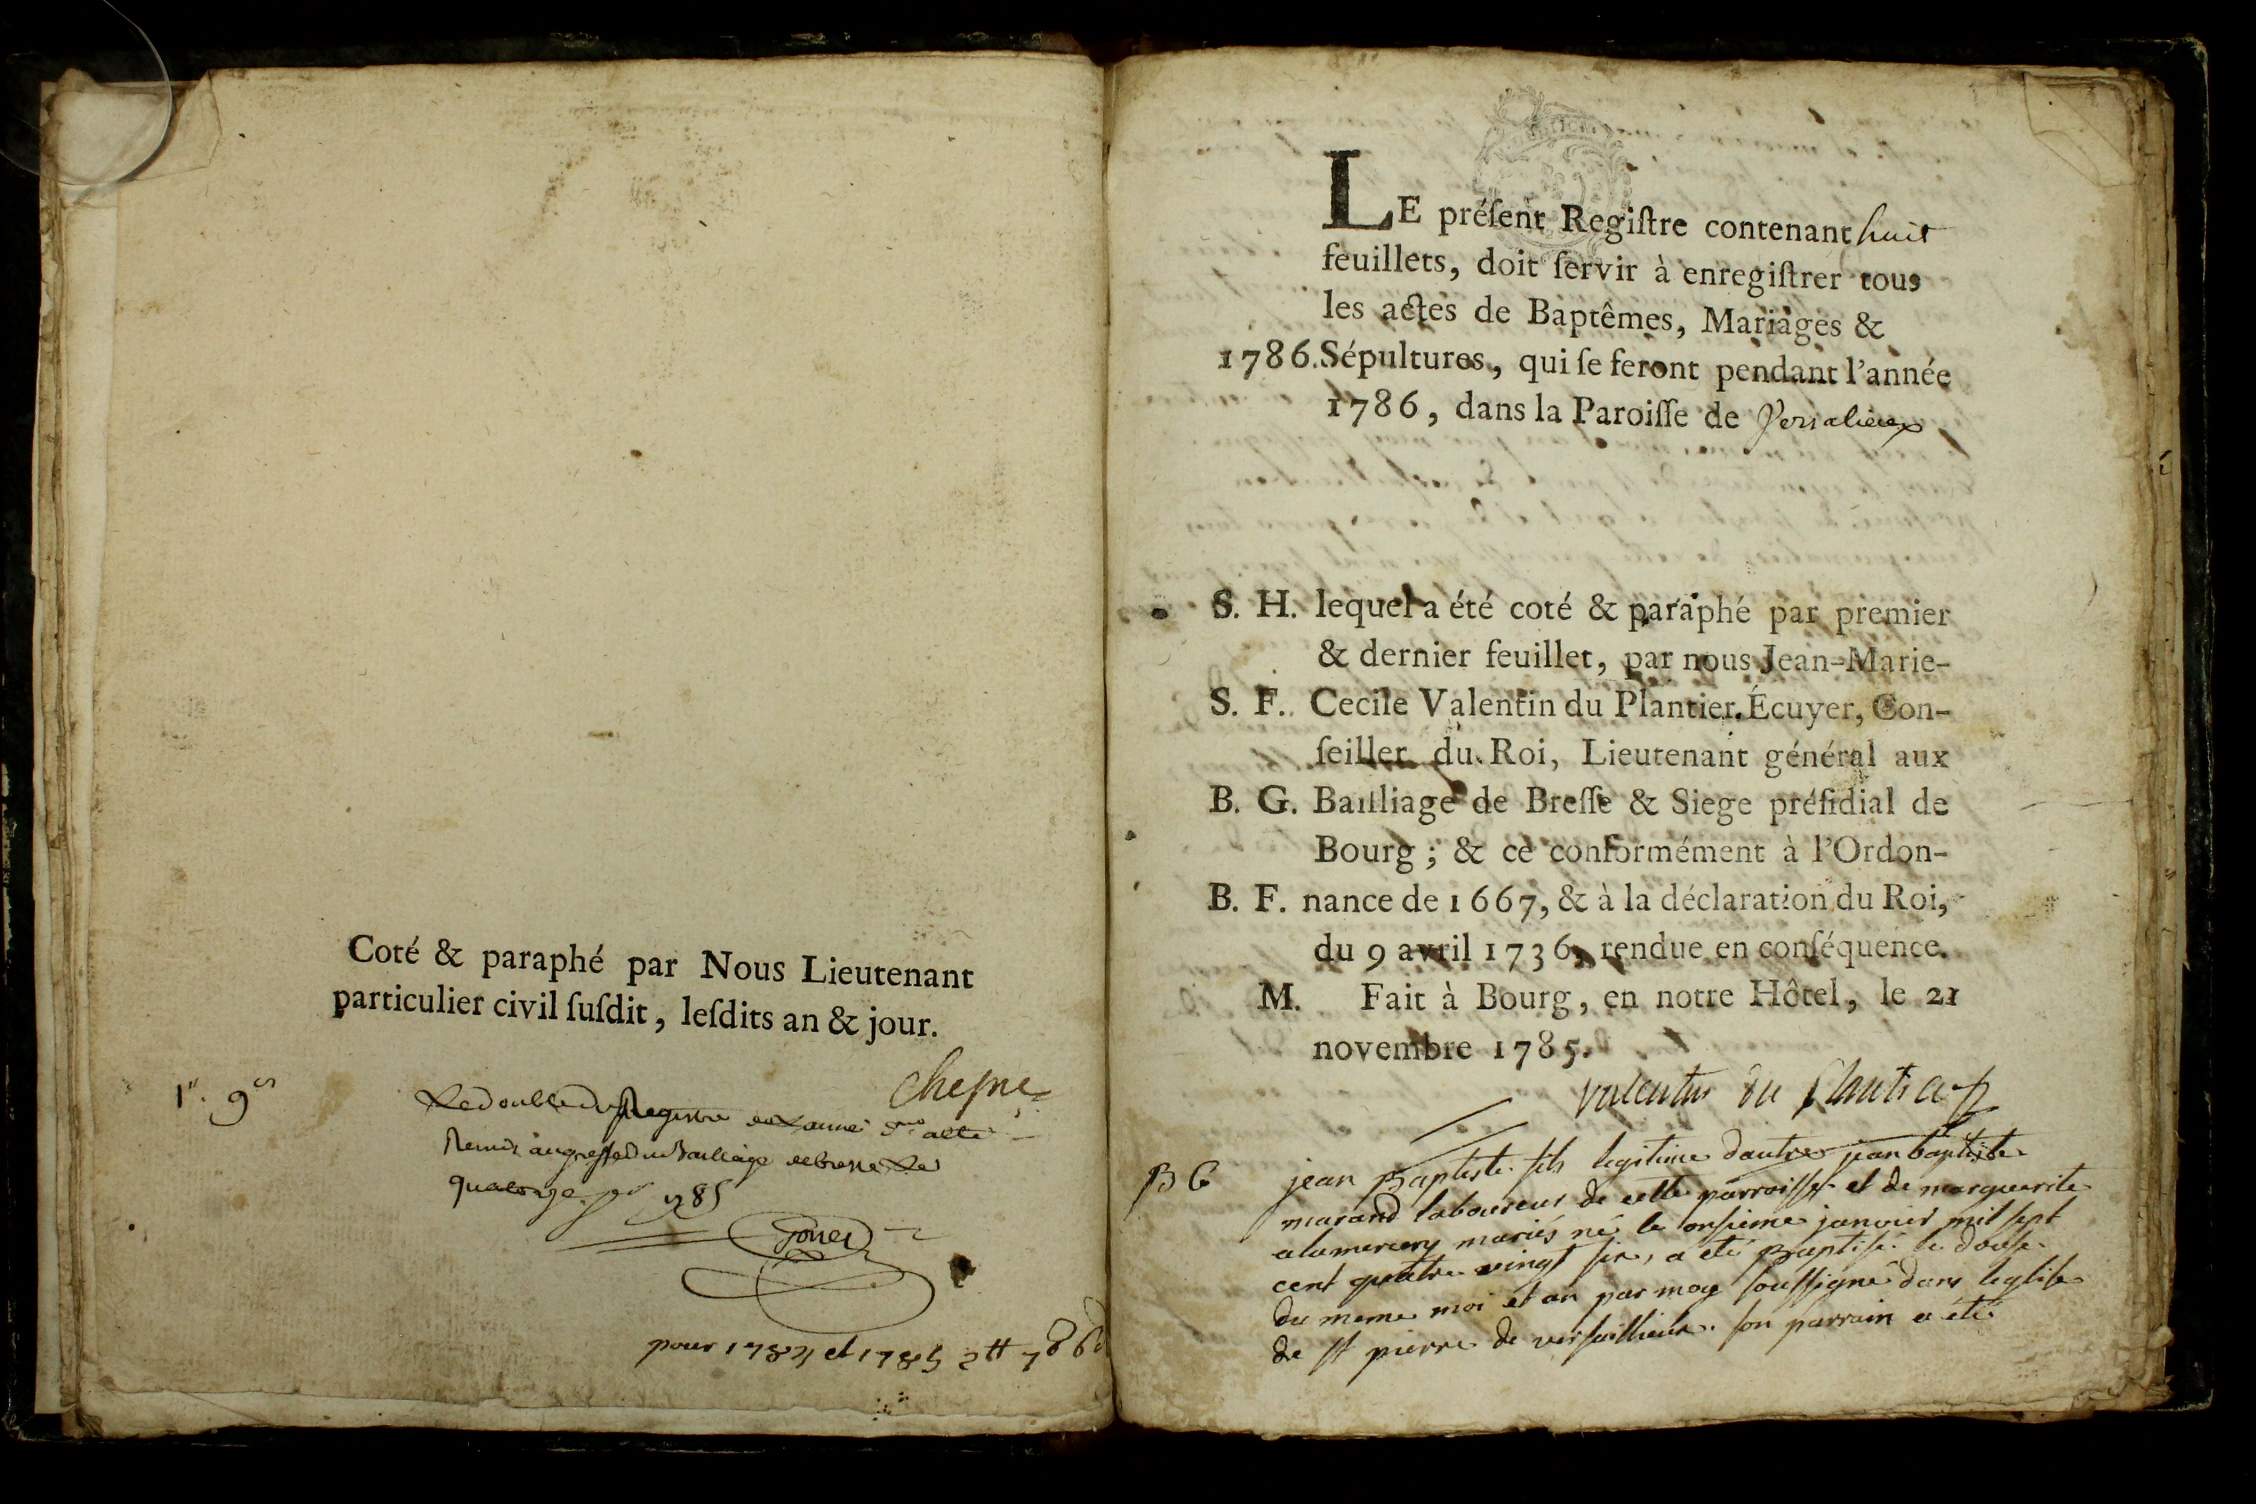 Coté & paraphé par Nous Lieutenant
particulier civil ſuſdit, leſdits an & jour.
Cheſne
1. 9
Le double du Registre de Lanné
Remis au greffe du Bailliage de bresse Le
quatorze 1785
pour 1784 et 1785 2tt 7 8 6d
LE préſent Regiſtre contenant huit
feuillets, doit ſervir à enregiſtrer tous
les actes de Baptêmes, Mariages &
1786. Sépultures, qui ſe feront pendant l'année
1786, dans la Paroiſſe de Versalieux
S. H. lequel a été coté & paraphé par premier
& dernier feuillet, par nous Jean-Marie-
S. F. Cecile Valentin du Plantier, Écuyer, Con-
ſeiller du Roi, Lieutenant général aux
B. G. Bailliage de Breſſe & Siege préſidial de
Bourg ; & ce conformément à l'Ordon-
B. F. nance de 1667, & à la déclaration du Roi,
du 9 avril 1736, rendue en conſéquence.
M. Fait à Bourg, en notre Hôtel, le 21
novembre 1785.
Valentin du Plantier
B G jean Baptiste fils legitime dautre jean baptiste
marand laboureur de cette parroisse et de marguerite
alamercery mariés né le onsieme janvier mil sept
cent quatre vingt six, a eté Baptisé le douse
du meme moi et an par moy soussigné dans leglise
de st pierre de versaillieux. son parrain a été